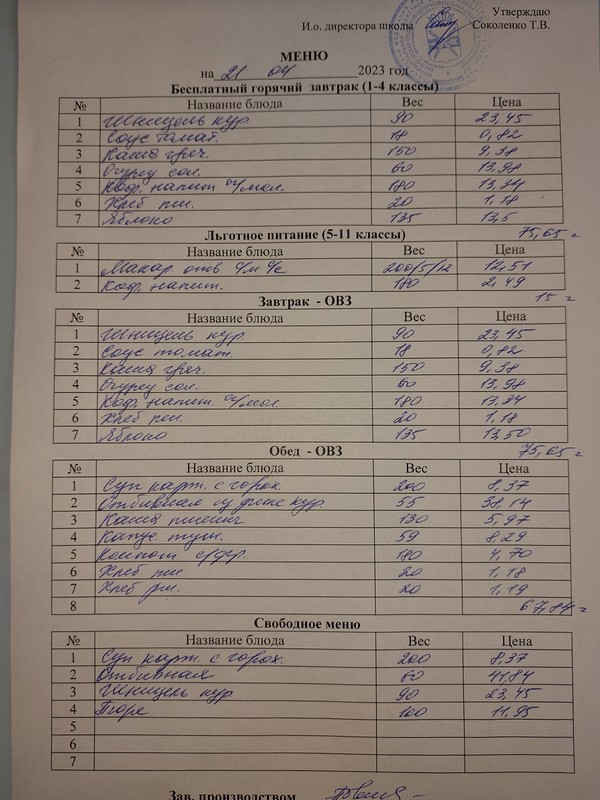 Утверждаю
И.о. директора школы Соколенко Т.В.
МЕНЮ
на 21 04 2023 год
Бесплатный горячий завтрак (1-4 классы)
№ Название блюда Вес Цена
1 Шницель кур. 90 23,45
2 Соус томат. 18 0,82
3 Каша греч. 150 9,38
4 Огурец сол. 60 13,98
5 Коф. напит сг/мол. 180 13,34
6 Хлеб пш. 20 1,18
7 Яблоко 135 13,5
Льготное питание (5-11 классы) 75,65
№ Название блюда Вес Цена
1 Макар. отв с/м с/с 200/5/12 12,51
2 Коф. напит. 180 2,49
Завтрак - ОВЗ 15
№ Название блюда Вес Цена
1 Шницель кур. 90 23,45
2 Соус томат. 18 0,82
3 Каша греч. 150 9,38
4 Огурец сол. 60 13,98
5 Коф. напит. сг/мол. 180 13,34
6 Хлеб пш. 20 1,18
7 Яблоко 135 13,50
Обед - ОВЗ 75,65
№ Название блюда Вес Цена
1 Суп карт. с горох. 200 8,37
2 Отбивная из филе кур 55 38,14
3 Каша пшенич 130 5,97
4 Капус. туш. 59 8,29
5 Компот с/фр. 180 4,70
6 Хлеб пш. 20 1,18
7 Хлеб рж. 20 1,19
8 67,84
Свободное меню
№ Название блюда Вес Цена
1 Суп карт. с горох. 200 8,37
2 Отбивная 60 41,84
3 Шницель кур 90 23,45
4 Пюре 100 11,95
5
6
7
Зав. производством